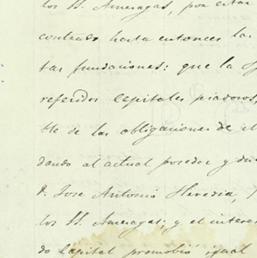 los H. Ameragas, por estar
contrado hasta entonces las
tas fundaciones: que la
referidos capitales piadosos,
tto de las obligaciones de el
dando al actual posedor y du
D. Jose Antonio Heredia,
los H. Ameragas; y el interes
do Capital promovio, igual